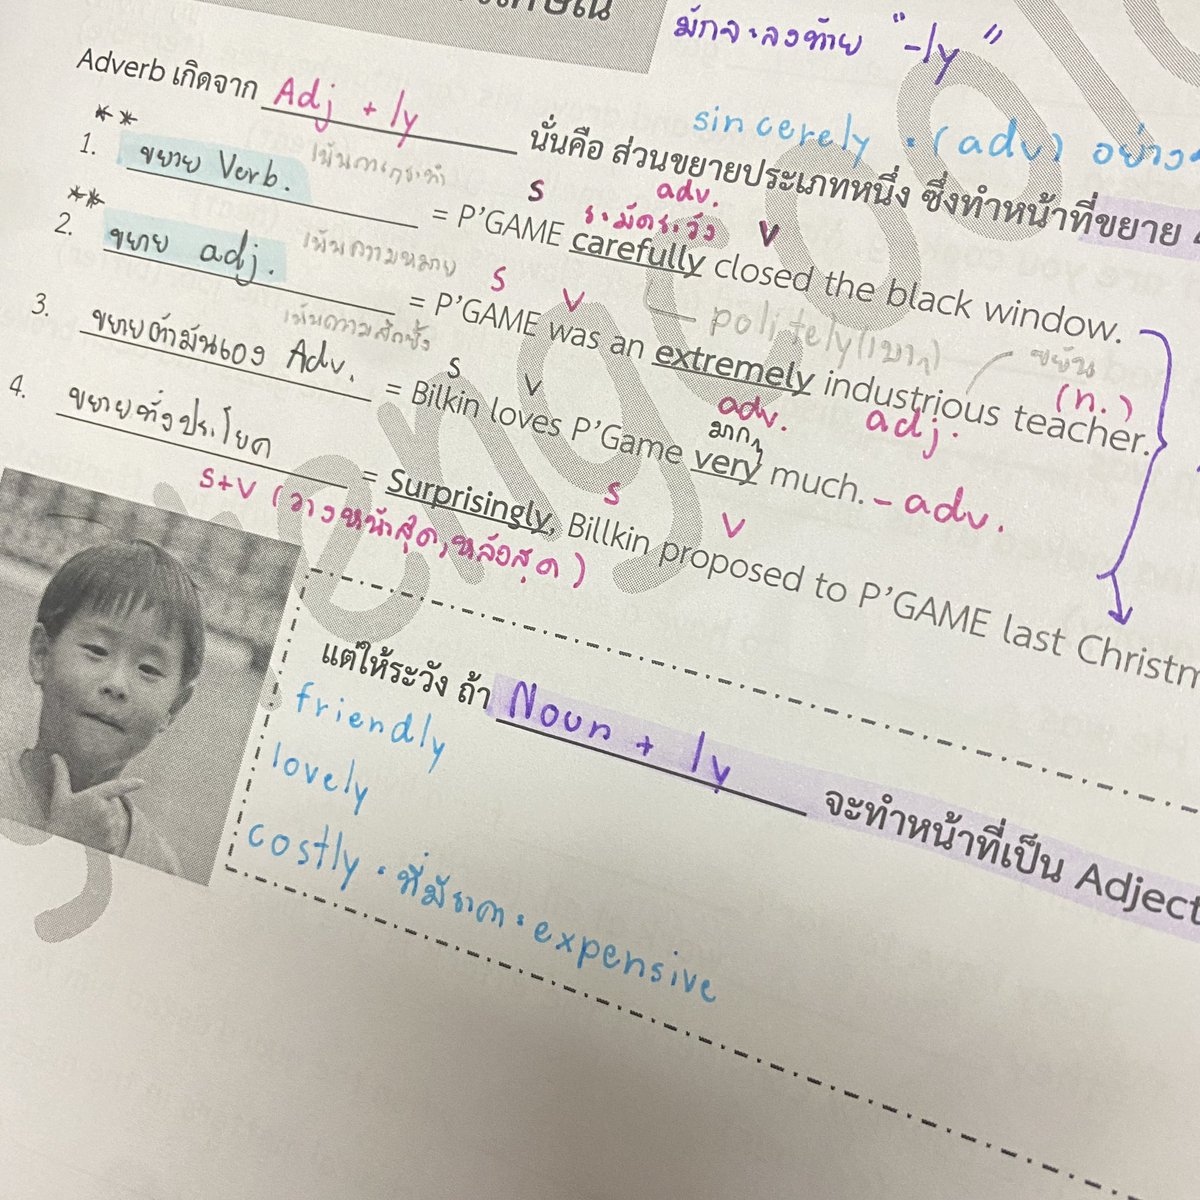 มักจะลงท้าย "-ly"
Adverb เกิดจาก Adj + ly นั่นคือ ส่วนขยายประเภทหนึ่ง ซึ่งทำหน้าที่ขยาย
sincerely • (adv) อย่าง
** เน้นการกระทำ
S adv. ระมัดระวัง V
1. ขยาย Verb. = P'GAME carefully closed the black window.
** เน้นความหมาย
S V politely (เบาๆ) ขยัน
2. ขยาย adj. = P'GAME was an extremely industrious teacher.
adv. adj. (n.)
เน้นความลึกซึ้ง
S V มากๆ
3. ขยายตัวมันเอง Adv. = Bilkin loves P'Game very much. - adv.
S V
4. ขยายทั้งประโยค = Surprisingly, Billkin proposed to P'GAME last Christm
S+V (วางหน้าสุด, หลังสุด)
แต่ให้ระวัง ถ้า Noun + ly จะทำหน้าที่เป็น Adject
friendly
lovely
costly • ที่มีราคา • expensive